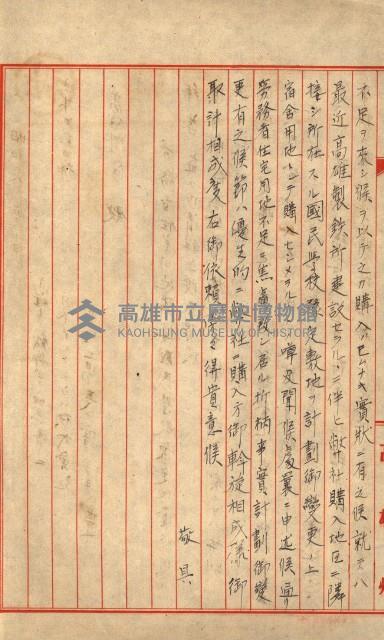 不足ヲ來シ候ヲ以テ之カ購入ノ已ムナキ實狀ニ有之候就テハ
最近高雄製鉄所建設セラルヽニ伴ヒ弊社購入地区ニ隣
接シ所在スル國民學校豫定敷地ヲ計劃御變更ノ上
宿舍用地トシテ購入セシメラルヽ噂及聞候處曩ニ申述候通リ
労務者住宅用地不足ニ焦慮致シ居ル折柄事實計劃御變
更有之候節ハ優先的ニ弊社ニ購入方御斡旋相成度御
取計相成度右御依賴旁々得貴意候
敬具
高雄市立歷史博物館
KAOHSIUNG MUSEUM OF HISTORY